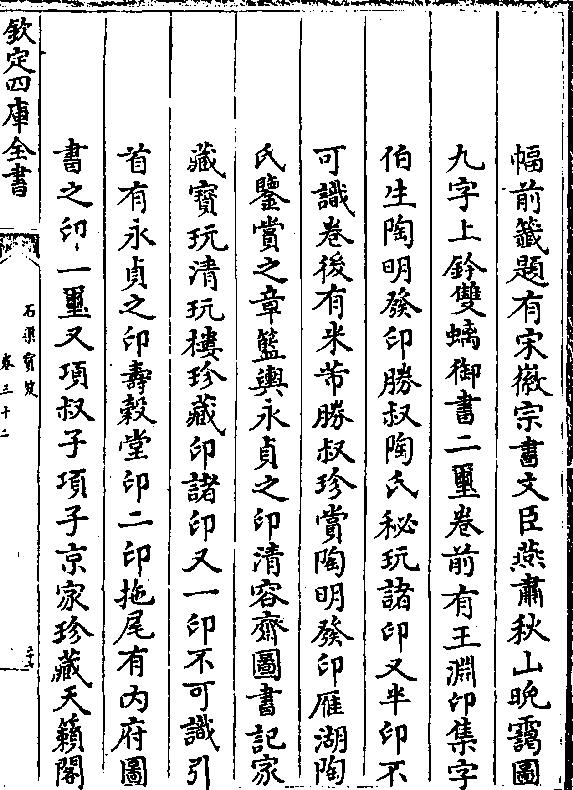 幅前籤題有宋徽宗書文臣燕肅秋山晩靄圖
九字上鈐雙螭御書二璽卷前有王淵印集字
伯生陶明發印勝叔陶氏秘玩諸印又半印不
可識卷後有米芾勝叔珍賞陶明發印雁湖陶
氏鑒賞之章籃輿永貞之印清容齋圖書記家
藏寶玩清玩樓珍藏印諸印又一印不可識引
首有永貞之印壽穀堂印二印拖尾有内府圖
書之印一璽又項叔子項子京家珍藏天籟閣
欽定四庫全書
石渠寶笈
卷三十二